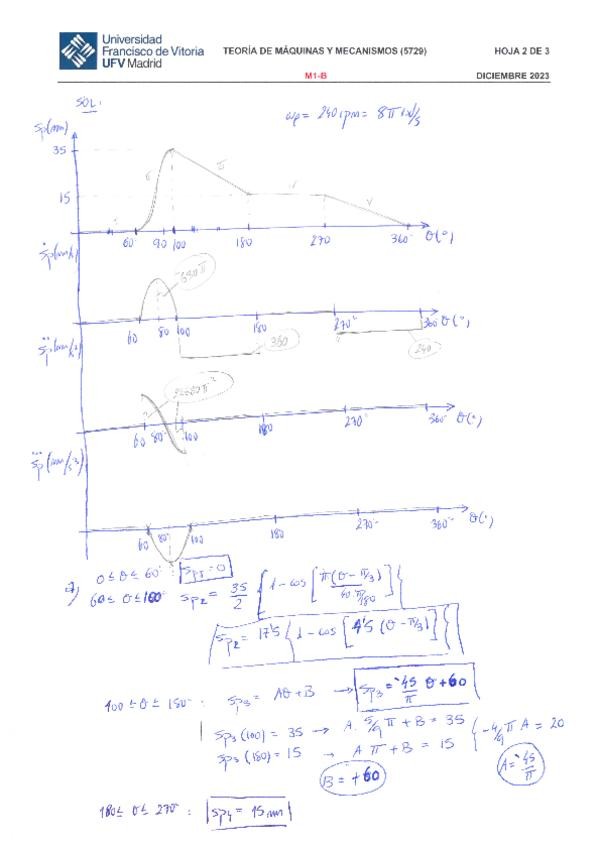 Universidad
Francisco de Vitoria
UFV Madrid
TEORÍA DE MÁQUINAS Y MECANISMOS (5729)
HOJA 2 DE 3
M1-B
DICIEMBRE 2023
SOL:
ωp = 240 rpm = 8π rad/s
Sp(mm)
35
15
60° 90 100 180 270 360° θ(°)
Ṡp(mm/s)
60 80 100 180 270° 360 θ(°)
360
240
S̈p(mm/s²)
60 80° 100 180 270° 360° θ(°)
S⃛p(mm/s³)
60 80 100 180 270° 360° θ(°)
0 ≤ θ ≤ 60° : Sp1 = 0
60 ≤ θ ≤ 100° Sp2 = 35/2 {1 - cos [π(θ - π/3) / (40·π/180)]}
Sp2 = 17'5 {1 - cos [4'5 (θ - π/3)]}
100 ≤ θ ≤ 180° : Sp3 = Aθ + B → Sp3 = -45/π θ + 60
Sp3 (100) = 35 → A · 5/9 π + B = 35
Sp3 (180) = 15 → A π + B = 15
-4/9 π A = 20
A = -45/π
B = +60
180 ≤ θ ≤ 270° : Sp4 = 15 mm